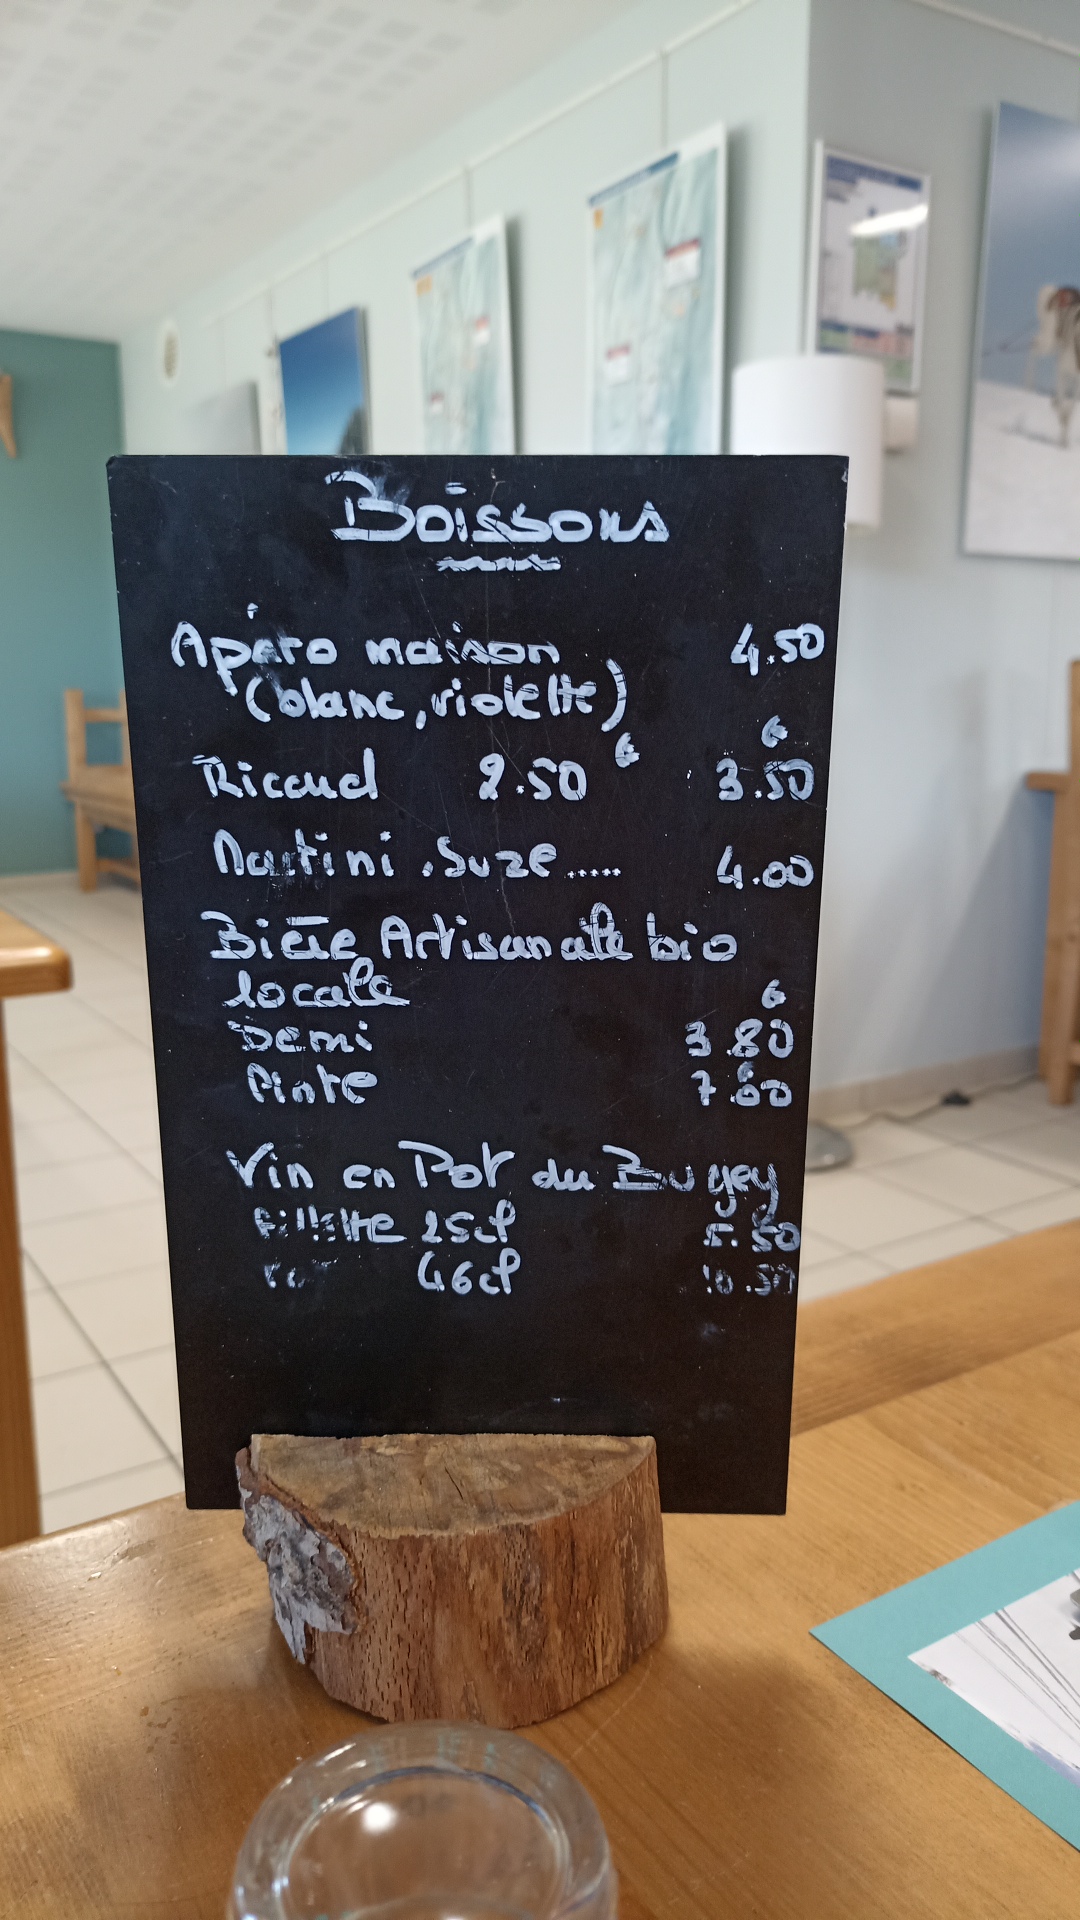 Boissons
Apéro maison 4.50
(blanc, violette)
Ricard 2.50 € 3.50 €
Martini, Suze..... 4.00
Bière Artisanale bio
locale €
Demi 3.80
Pinte 7.60
Vin en Pot du Bugey
Fillette 25cl 5.50
46cl 10.50